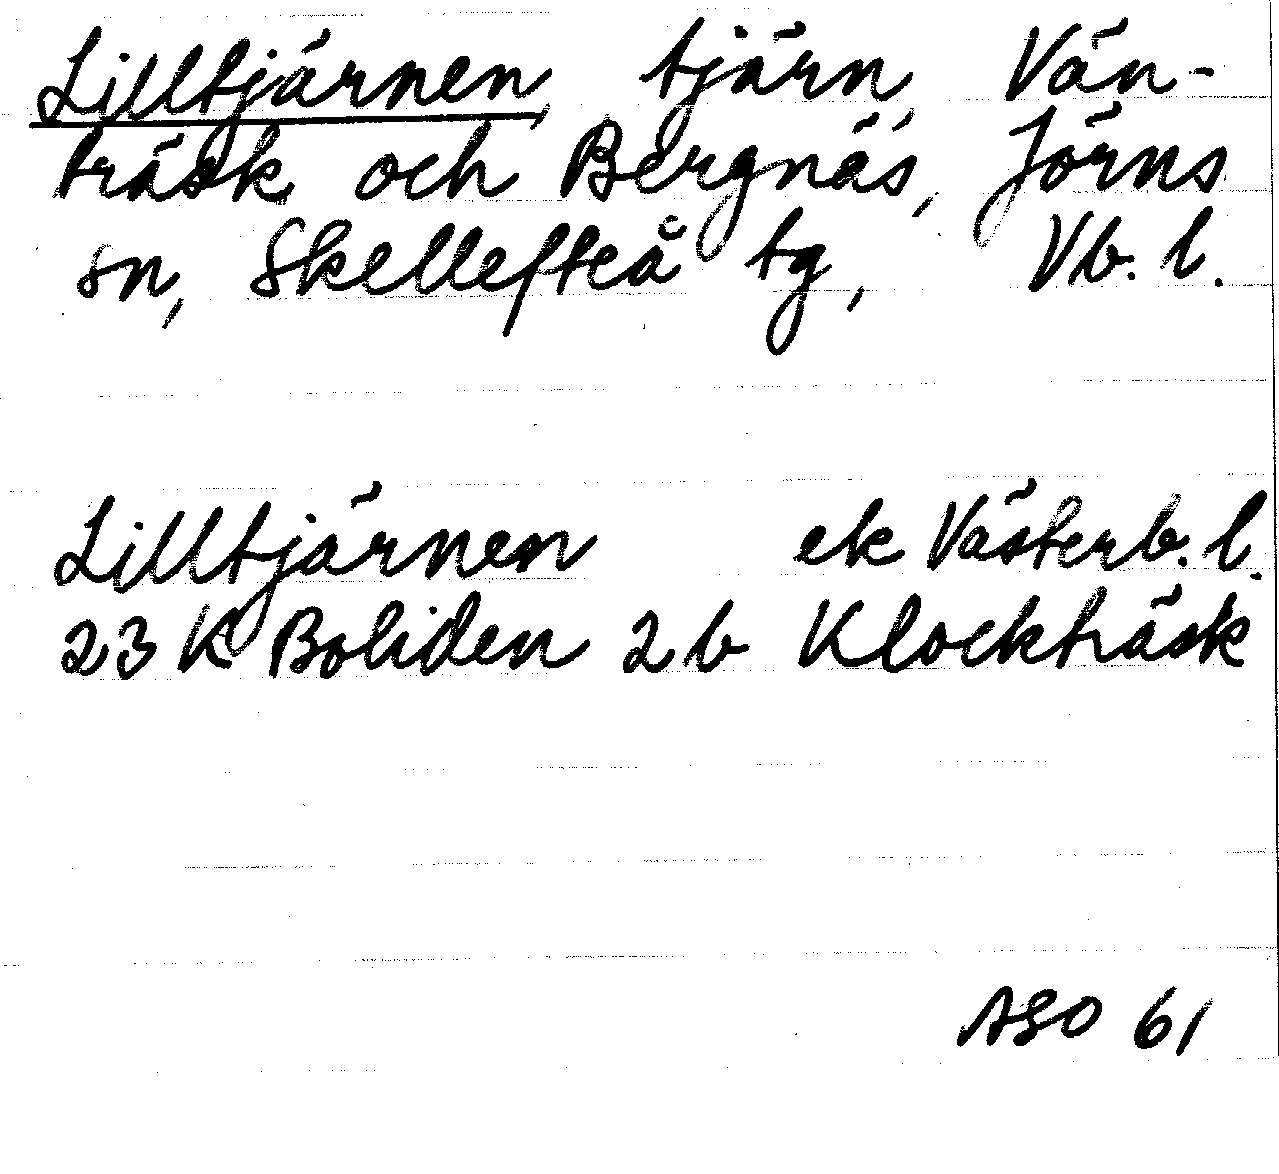 Lilltjärnen, tjärn, Vän-
träsk och Bergnäs, Jörns
sn, Skellefteå tg, Vb. l.
Lilltjärnen ek Västerb. l.
23 K Boliden 2 b Klockträsk
ASO 61